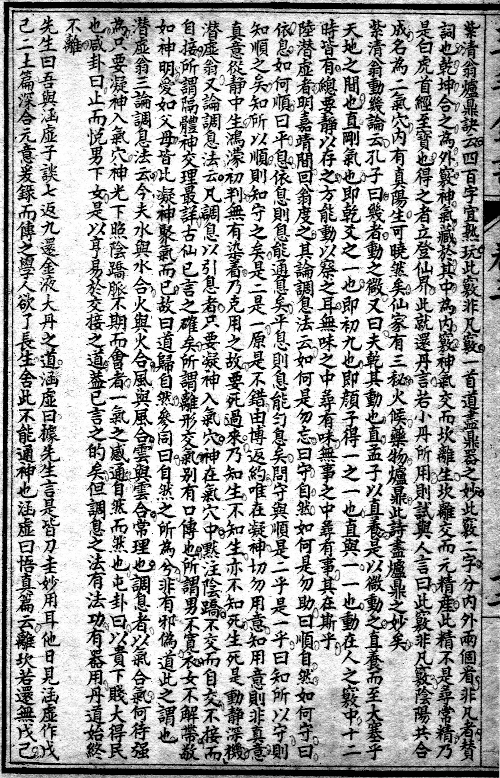 紫清翁爐鼎訣云四百字宜熟玩此竅非凡竅一首道盡鼎器之妙此竅二字分內外兩個看非凡者贊
詞也乾坤合之為外竅神氣藏於其中為內竅神氣交而坎離生坎離交而元精產此精不是尋常精乃
是白虎首經至寶也得之者立登仙界此就還丹言若小丹所用則試與人言曰此竅非凡竅陰陽共合
成名為二氣穴內有真陽生可曉蓂矣仙家有三秘火候藥物爐鼎此詩盡爐鼎之妙矣
紫清翁動幾論云孔子曰幾者動之微又曰夫乾其動也直孟子以直養是以微動之直養而至大塞乎
天地之間也直剛氣也即乾爻之一也即初九也即顏子得一之一也直與一一也動在人之竅中十二
時皆有總要靜以存之方能動以察之耳無味之中尋有味無事之中尋有事其在斯乎
陸潛虛者明嘉靖間回翁度之其論調息法云如何是勿忘曰守自然如何是勿助曰順自然如何守曰
依息如何順曰平息依息則息能通息矣平息則息能勻息矣問守與順是二乎是一乎曰知所以守則
知順之矣知所以順則知守之矣是二是一原是不錯由博返約唯在凝神切勿用意知用意則非真意
真意從靜中生鴻濛初判無有染着乃克用之故要死過來乃知生不知生亦不知死生死是動靜深機
潛虛翁又論調息法云凡調息以引息者只要凝神入氣穴神在氣穴中默注陰蹻不交而自交不接而
自接所謂隔體神交理最詳古仙已言之確矣所謂離形交氣別有口傳也所謂男不寬衣女不解帶敬
如神明愛如父母皆比凝神聚氣而已故曰道歸自然參同曰自然之所為兮非有邪偽道此之謂也
潛虛翁三論調息法云今夫水與水合火與火合風與風合雲與雲合常理也調息者以氣合氣何待强
為只要凝神入氣穴神光下照陰蹻脈不期而會者一氣之感通自然而然也屯卦曰以貴下賤大得民
也咸卦曰止而悅男下女是以亨易於交接之道蓋已言之的矣但調息之法有法功有器用丹道始終
不離
先生曰吾與涵虛子談七返九還金液大丹之道涵虛曰據先生言是皆刀圭妙用耳他日見涵虛作戊
己二土篇深合元意爰錄而傳之學人欲了長生舍此不能通神也涵虛曰悟真篇云離坎若還無戊己